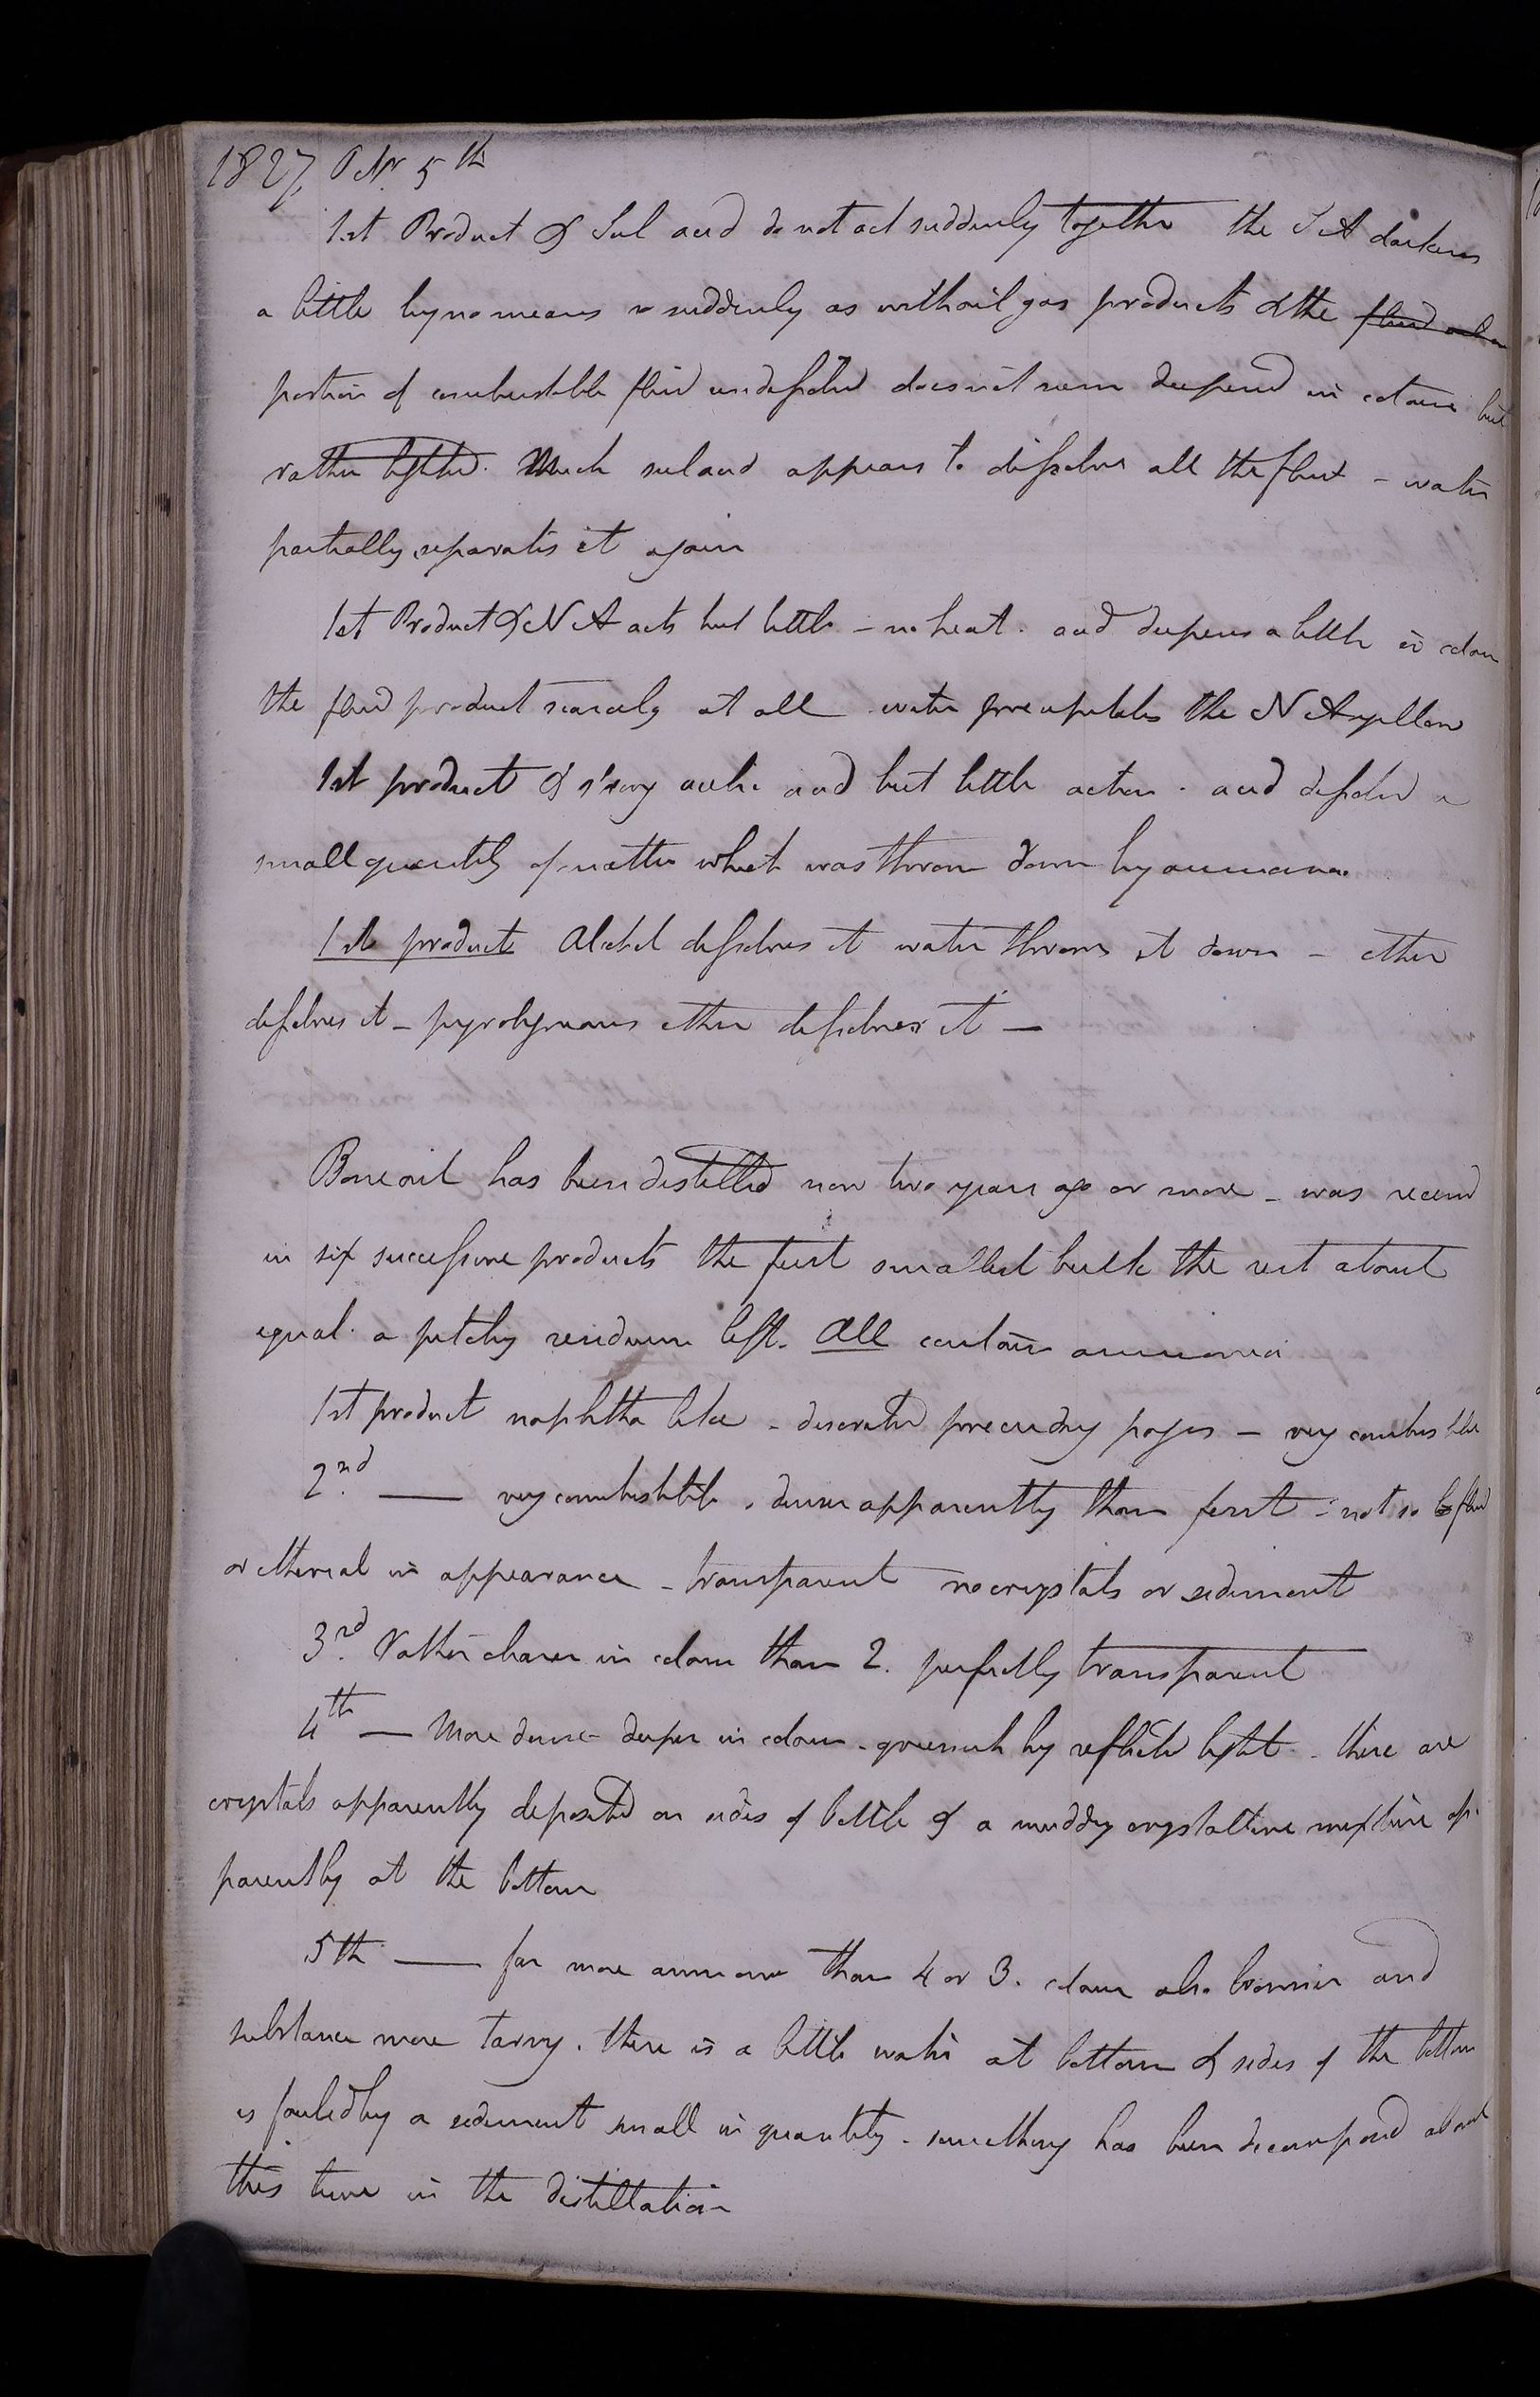 1827, Octr. 5th
1st Product & Sul acid do not act suddenly together the S A darkens
a little by no means so suddenly as with oil gas products & the fluid
portion of combustible fluid undissolved does not seem deepened in colour but
rather lighter. Much sul acid appears to dissolve all the fluid - water
partially separates it again
1st Product & N A acts but little - no heat. acid deepens a little in colour
the fluid product scarcely at all water precipitates the N A yellow
1st product & strong acetic acid but little action. acid dissolved a
small quantity of matter which was thrown down by ammonia
1st product Alcohol dissolves it water throws it down - ether
dissolves it - pyroligneous ether dissolves it —
Bone oil has been distilled now two years ago or more - was received
in six successive products the first smallest bulk the rest about
equal. a pitchy residuum left. All contain ammonia
1st product naphtha like - described preceding pages - very combustible
2nd. — very combustible, denser apparently than first - not so fluid
or ethereal in appearance - transparent no crystals or sediment
3rd. Rather clearer in colour than 2. perfectly transparent
4th — More dense deeper in colour - greenish by reflected light - there are
crystals apparently deposited on sides of bottle & a muddy crystalline mixture ap-
parently at the bottom
5th — far more ammonia than 4 or 3. colour also browner and
substance more tarry. there is a little water at bottom & sides of the bottom
is fouled by a sediment small in quantity - something has been decomposed about
this time in the distillation